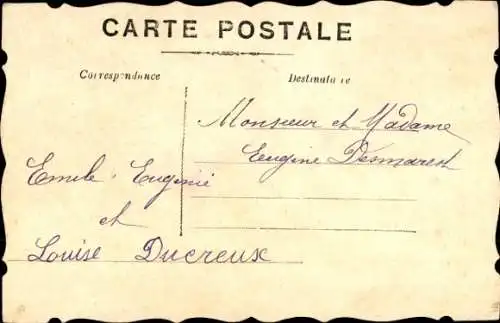 CARTE POSTALE
Correspondance
Destinataire
Monsieur et Madame
Eugène Desmarest
Emile, Eugenie
et
Louise Ducreux